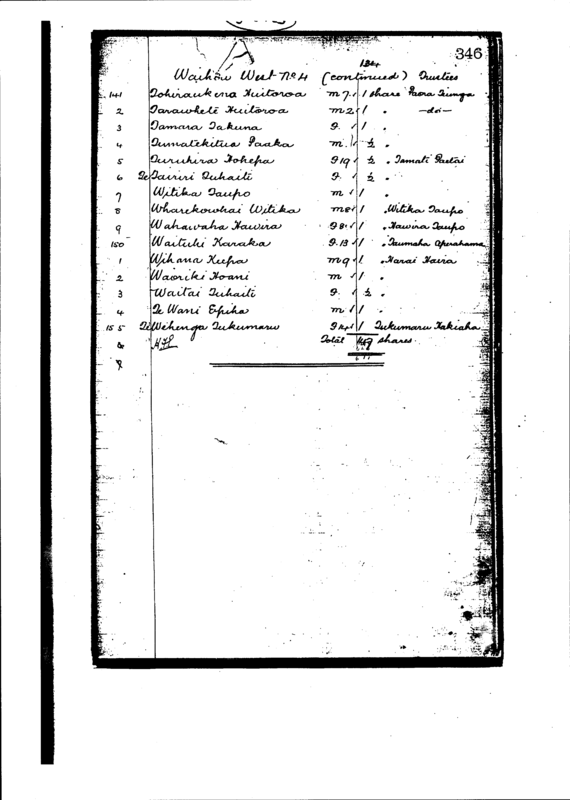 346
134
Waihou West No 4 (continued) Trustees
141 Tohiraukena Huitoroa m 7 1 share Paora Tiunga
2 Tarawhete Huitoroa m 2 1 " —do—
3 Tamara Takuna f. 1 "
4 Tumatekitua Paaka m. ½ "
5 Turuhira Hohepa f 19 ½ " Tamati Paetai
6 Te Tairiri Tuhaiti f. ½ "
7 Witika Taupo m 1 "
8 Wharekowhai Witika m 8 1 " Witika Taupo
9 Wahawaha Hawira f 8 1 " Hawira Taupo
150 Waituhi Karaka f. 13 1 " Taumaha Aperahama
1 Wihana Kupa m 9 1 " Harai Haira
2 Waoriki Hoani m 1 "
3 Waitai Tuhaiti f. ½ "
4 Te Wani Epiha m 1 "
155 Te Wehenga Tukumaru f 14 1 Tukumaru Kakiaha
Total shares